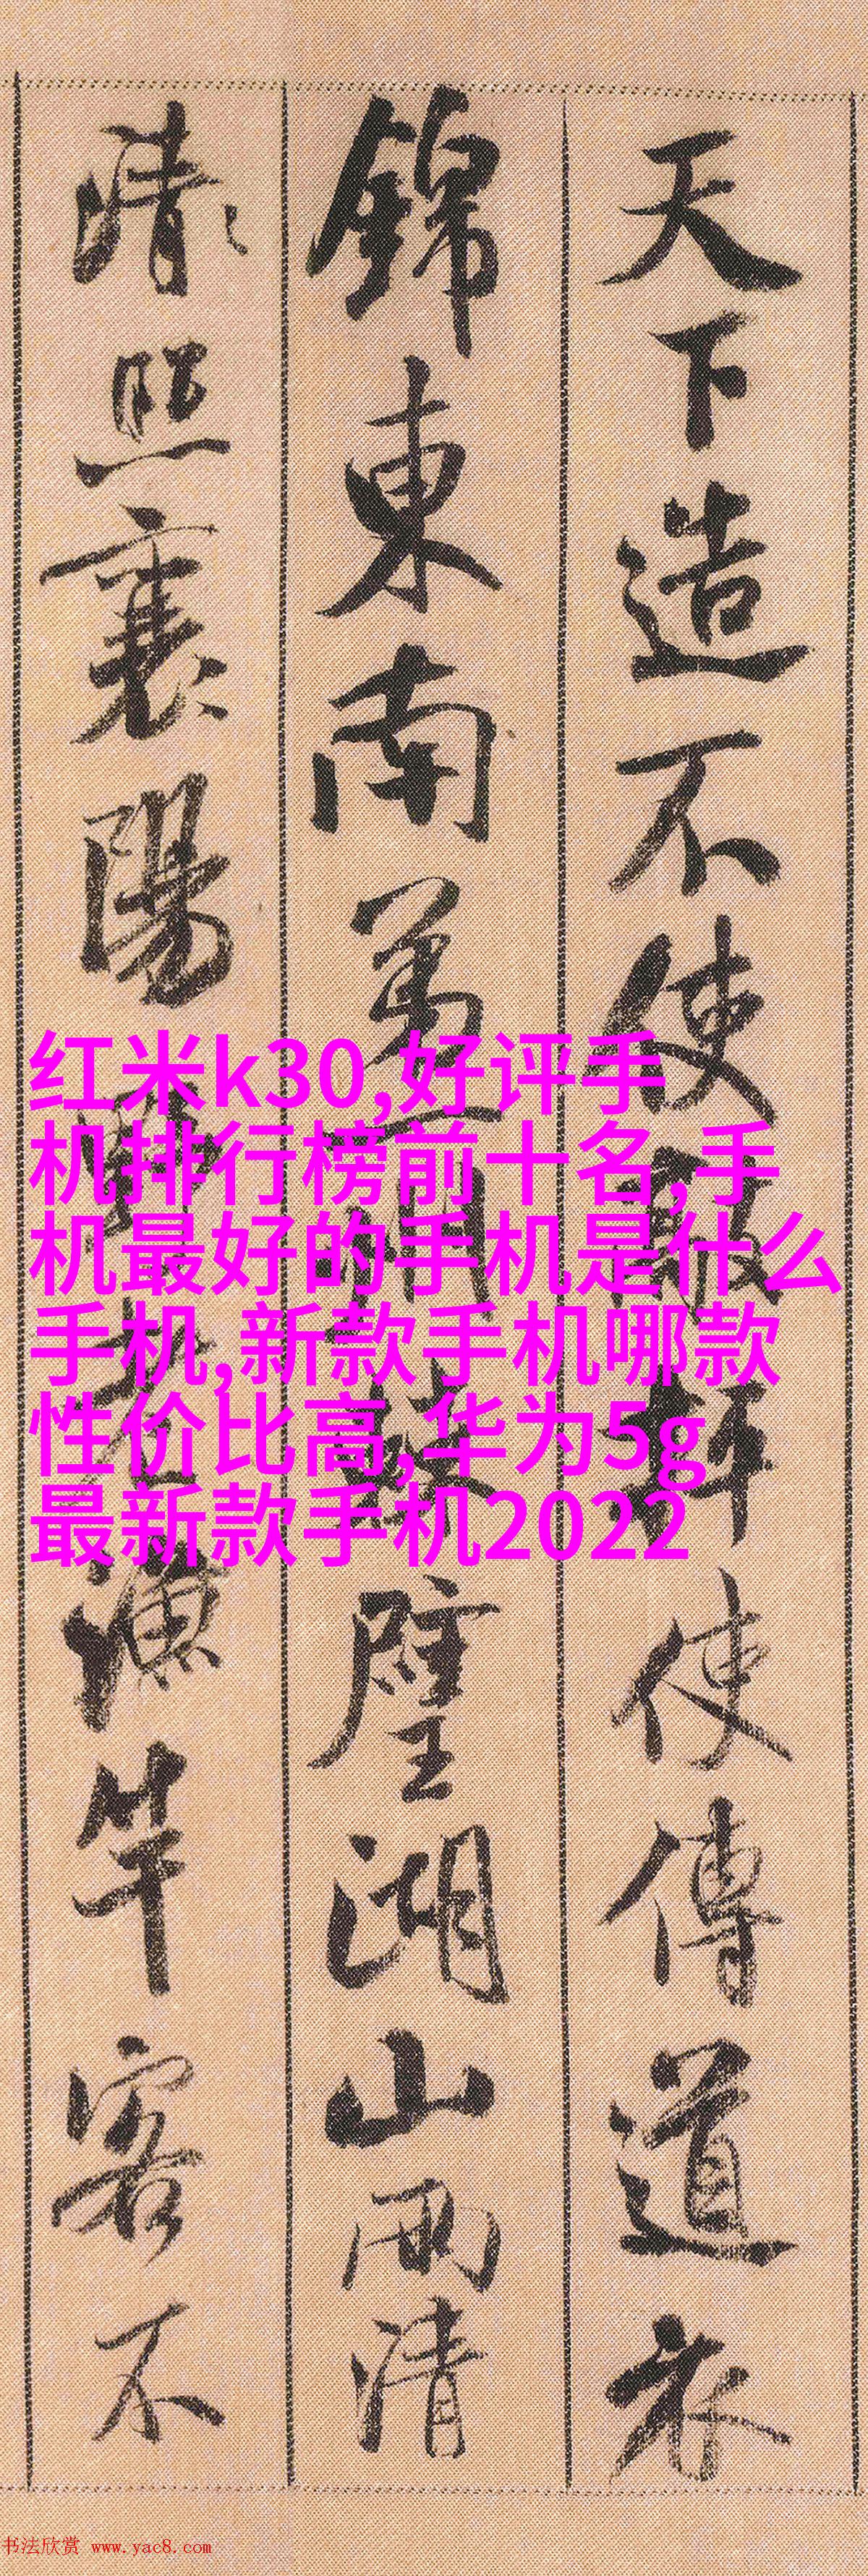 天下造不使使傳道衣
錦東南第一璧湖山兩清
清照襄陽漁竿客不
红米k30,好评手
机排行榜前十名,手
机最好的手机是什么
手机,新款手机哪款
性价比高,华为5g
最新款手机2022
书法欣赏 www.yac8.com